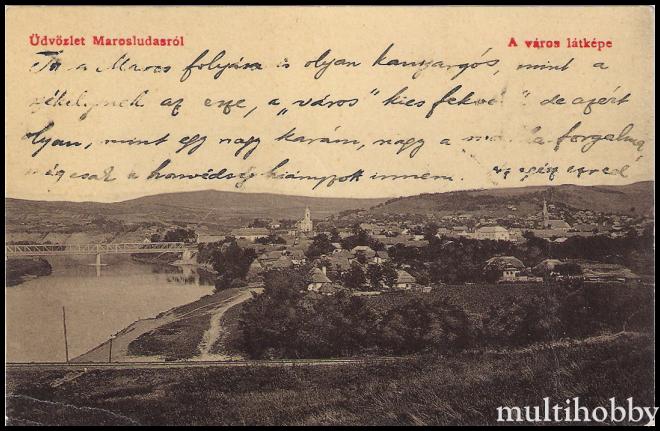 Üdvözlet Marosludasról
A város látképe
Itt a Maros folyása is olyan kanyargós, mint a
székelynek az esze, a „város" kies fekvésű" de azért
olyan, mint egy nagy karám, nagy a forgalma,
még csak a honvédség hiányzik innen. ezred
multihobby